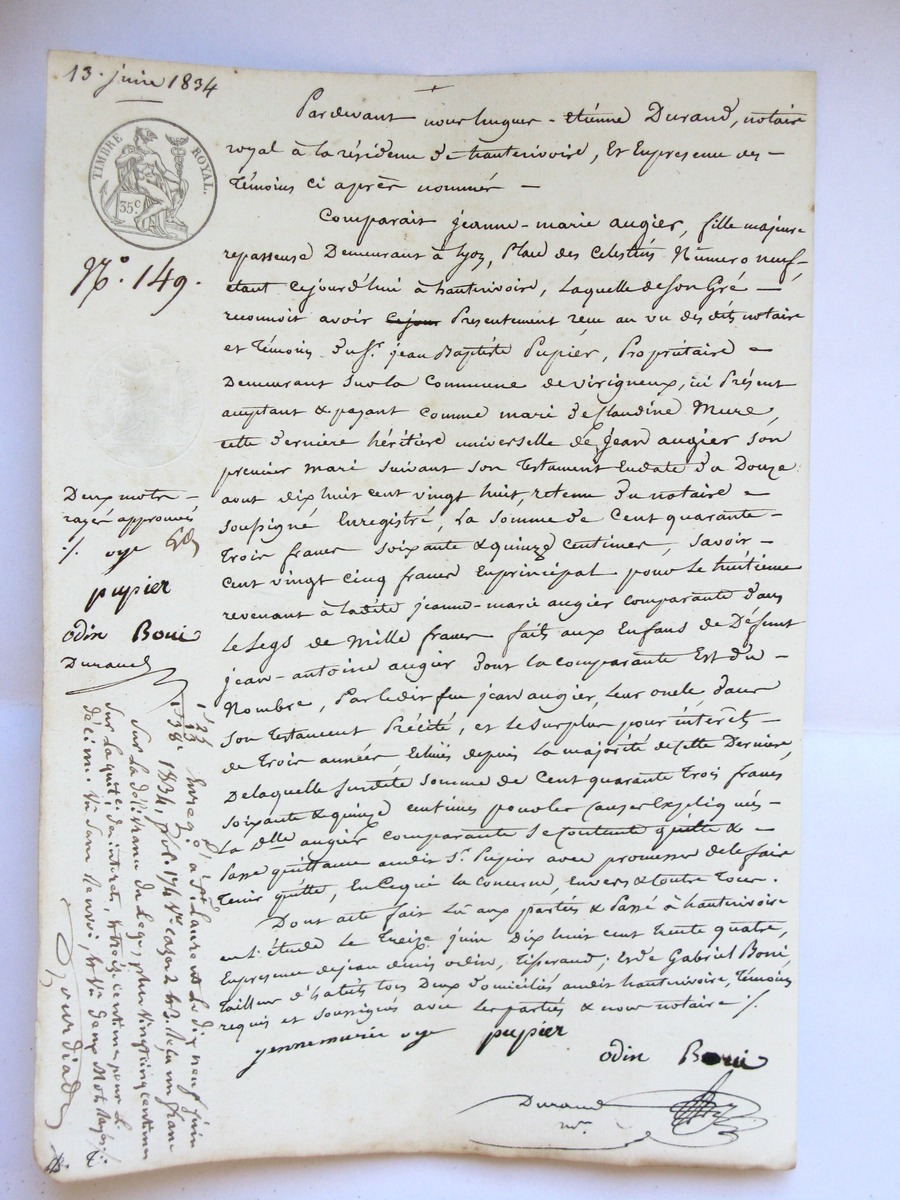 13. juin 1834
TIMBRE ROYAL.
35c.
N.o 149.
Pardevant nous hugues - etienne Durand, notaire
royal à la résidence de hauterivoire, Et Enpresence des -
Témoins ci après nommés -
Comparait jeanne-marie augier, fille majeure
repasseuse Demeurant à lyon, Place des Celestins Numero neuf
etant cejourd'hui à hauterivoire, Laquelle deson Gré -
reconnoit avoir Presentement recu au vu des dits notaire
et Témoins. Du sr. jean Baptiste Pupier, Propriétaire -
Demeurant sur la Commune de virigneux, ici Présent
acceptant & payant comme mari de Claudine Mure,
cette dernière héritière universelle de jean augier son
premier mari suivant son Testament Endate du Douze
aout dix huit cent vingt huit, retenu du notaire -
soussigné Enregistré, La somme de Cent quarante -
Trois francs soixante & quinze centimes, savoir -
Cent vingt cinq francs Enprincipal pour le huitieme
revenant à ladite jeanne-marie augier comparante dans
Le Legs de Mille francs faits aux Enfans de Défunt
jean-antoine augier dont la comparante Est du -
Nombre, Par ledit feu jean augier, leur oncle dans
son Testament Précité, et le surplus pour intérêts -
de Trois années Echues depuis la majorité de cette Dernière,
De laquelle susdite somme de Cent quarante trois francs
soixante & quinze centimes pour les Causes Expliquées -
La Dlle augier comparante se Contente quitte & -
Passe quittance audit Sr. Pupier avec promesse de le faire
Tenir quitte, En cequi la concerne, Envers & contre Tous.
Dont acte fait Lu aux parties & Passé à hauterivoire
en l'étude Le Treize juin Dix huit cent trente quatre,
Enpresence de jean denis odin, Tisserand; Et de Gabriel Boni,
Tailleur d'habits tous Deux Domiciliés audit hauterivoire, Témoins
requis et soussignés avec Les parties & nous notaire ./.
pupier
odin Boni
Durand
nre.
Deux mots -
rayés approuvés
./. oye
pupier
odin Boni
Durand
Enreg. à St. Laurent Le dix neuf juin
1834, Vol. 174 case 2 Reçu un franc
Sur la délivrance du legs, plus vingt cinq centimes
Sur la quitce. d'intérêts, & treize centimes pour le
décime.